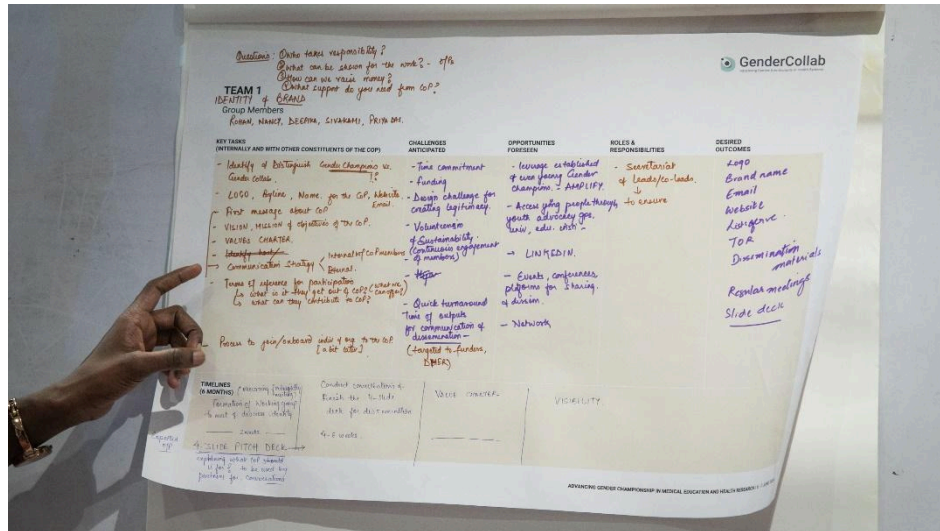 Questions: ① Who takes responsibility?
② What can be shown for the work? - o/ps
③ How can we raise money?
④ What support do you need from CoP?
GenderCollab
TEAM 1
IDENTITY & BRAND
Group Members
ROHAN, NANCY, DEEPIKA, SIVAKAMI, PRIYA DAS.
KEY TASKS
(INTERNALLY AND WITH OTHER CONSTITUENTS OF THE COP)
- Identify & Distinguish Gender Champions vs.
Gender Collab.
- LOGO, Byline, Name for the CoP, Website
Email.
- First message about CoP
- VISION, MISSION & objectives of the CoP.
- VALUES CHARTER.
- Communication Strategy < Internal w/ CoP members
External.
- Terms of reference for participation
↳ what is it they get out of CoP? (what we can offer?)
↳ what can they contribute to CoP?
- Process to join/onboard indiv & org. to the CoP
[a bit later]
CHALLENGES
ANTICIPATED
- Time commitment
- Funding
- Design challenge for
creating legitimacy.
- Volunteerism
& Sustainability.
(continuous engagement
of members)
- Quick turnaround
Time of outputs
for communication &
dissemination -
(targeted to funders,
OPPORTUNITIES
FORESEEN
- leverage established
& even young Gender
Champions. - AMPLIFY.
- Access young people through
youth advocacy gps.
univ, edu. instn.
→ LINKEDIN.
- Events, conferences
platforms for sharing.
- Network
ROLES &
RESPONSIBILITIES
- Secretariat
& leads/co-leads.
↓
to ensure
DESIRED
OUTCOMES
Logo
Brand name
Email
Website
Listserve.
TOR
Dissemination
materials
Regular meetings
Slide deck
TIMELINES
(6 MONTHS)
Formation of working group
to meet & discuss identity
weeks
4-SLIDE PITCH DECK →
explaining what CoP
is for? to be used by
for conversations
Conduct consultations &
finish the slide
deck for dissemination
4-6 weeks.
VALUE CHARTER
VISIBILITY.
ADVANCING GENDER CHAMPIONSHIP IN MEDICAL EDUCATION AND HEALTH RESEARCH